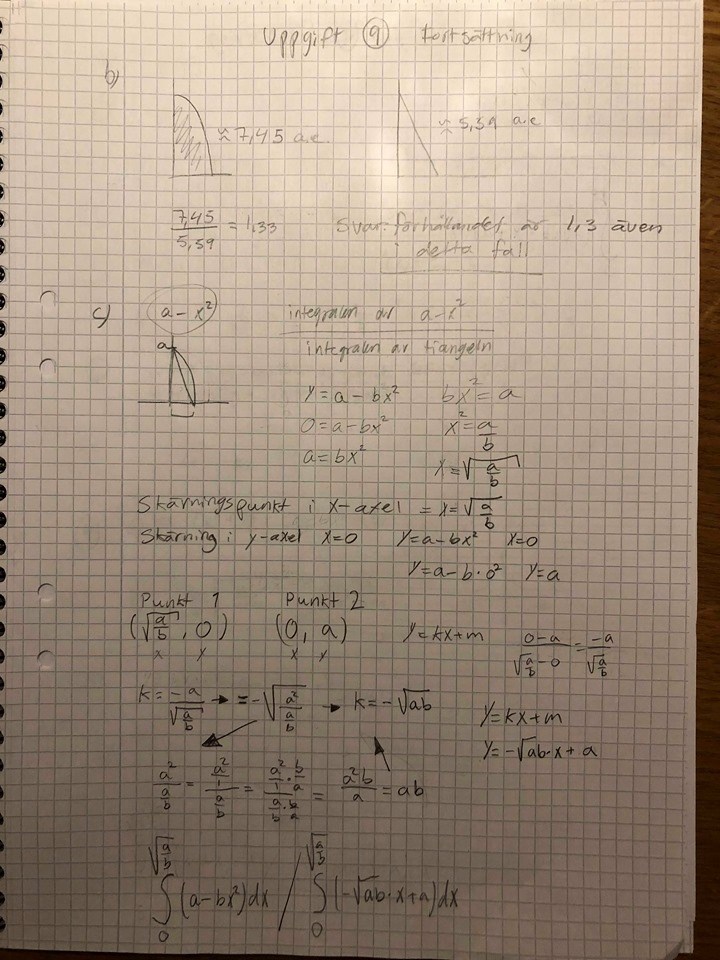 Uppgift 9 fortsättning
b)
≈ 7,45 a.e. ≈ 5,59 a.e
7,45/5,59 = 1,33 Svar: förhållandet är 1,3 även
i detta fall
c) a - x² integralen av a-x²
integralen av tiangeln
a
y = a - bx² bx² = a
0 = a - bx² x² = a/b
a = bx² x = √(a/b)
Skärningspunkt i x-axel = x = √(a/b)
Skärning i y-axel x=0 y = a - bx² x=0
y = a - b · 0² y = a
Punkt 1 Punkt 2
(√(a/b), 0) (0, a) y = kx+m (0-a)/(√(a/b) - 0) = -a/√(a/b)
x y x y
k = -a/√(a/b) → = -√(a²/(a/b)) → k = -√ab
y = kx+m
y = -√ab · x + a
a²/(a/b) = (a²/1)/(a/b) = (a²/1 · b/a)/(a/b · b/a) = a²b/a = ab
√(a/b) √(a/b)
∫ (a-bx²)dx / ∫ (-√ab · x + a)dx
0 0